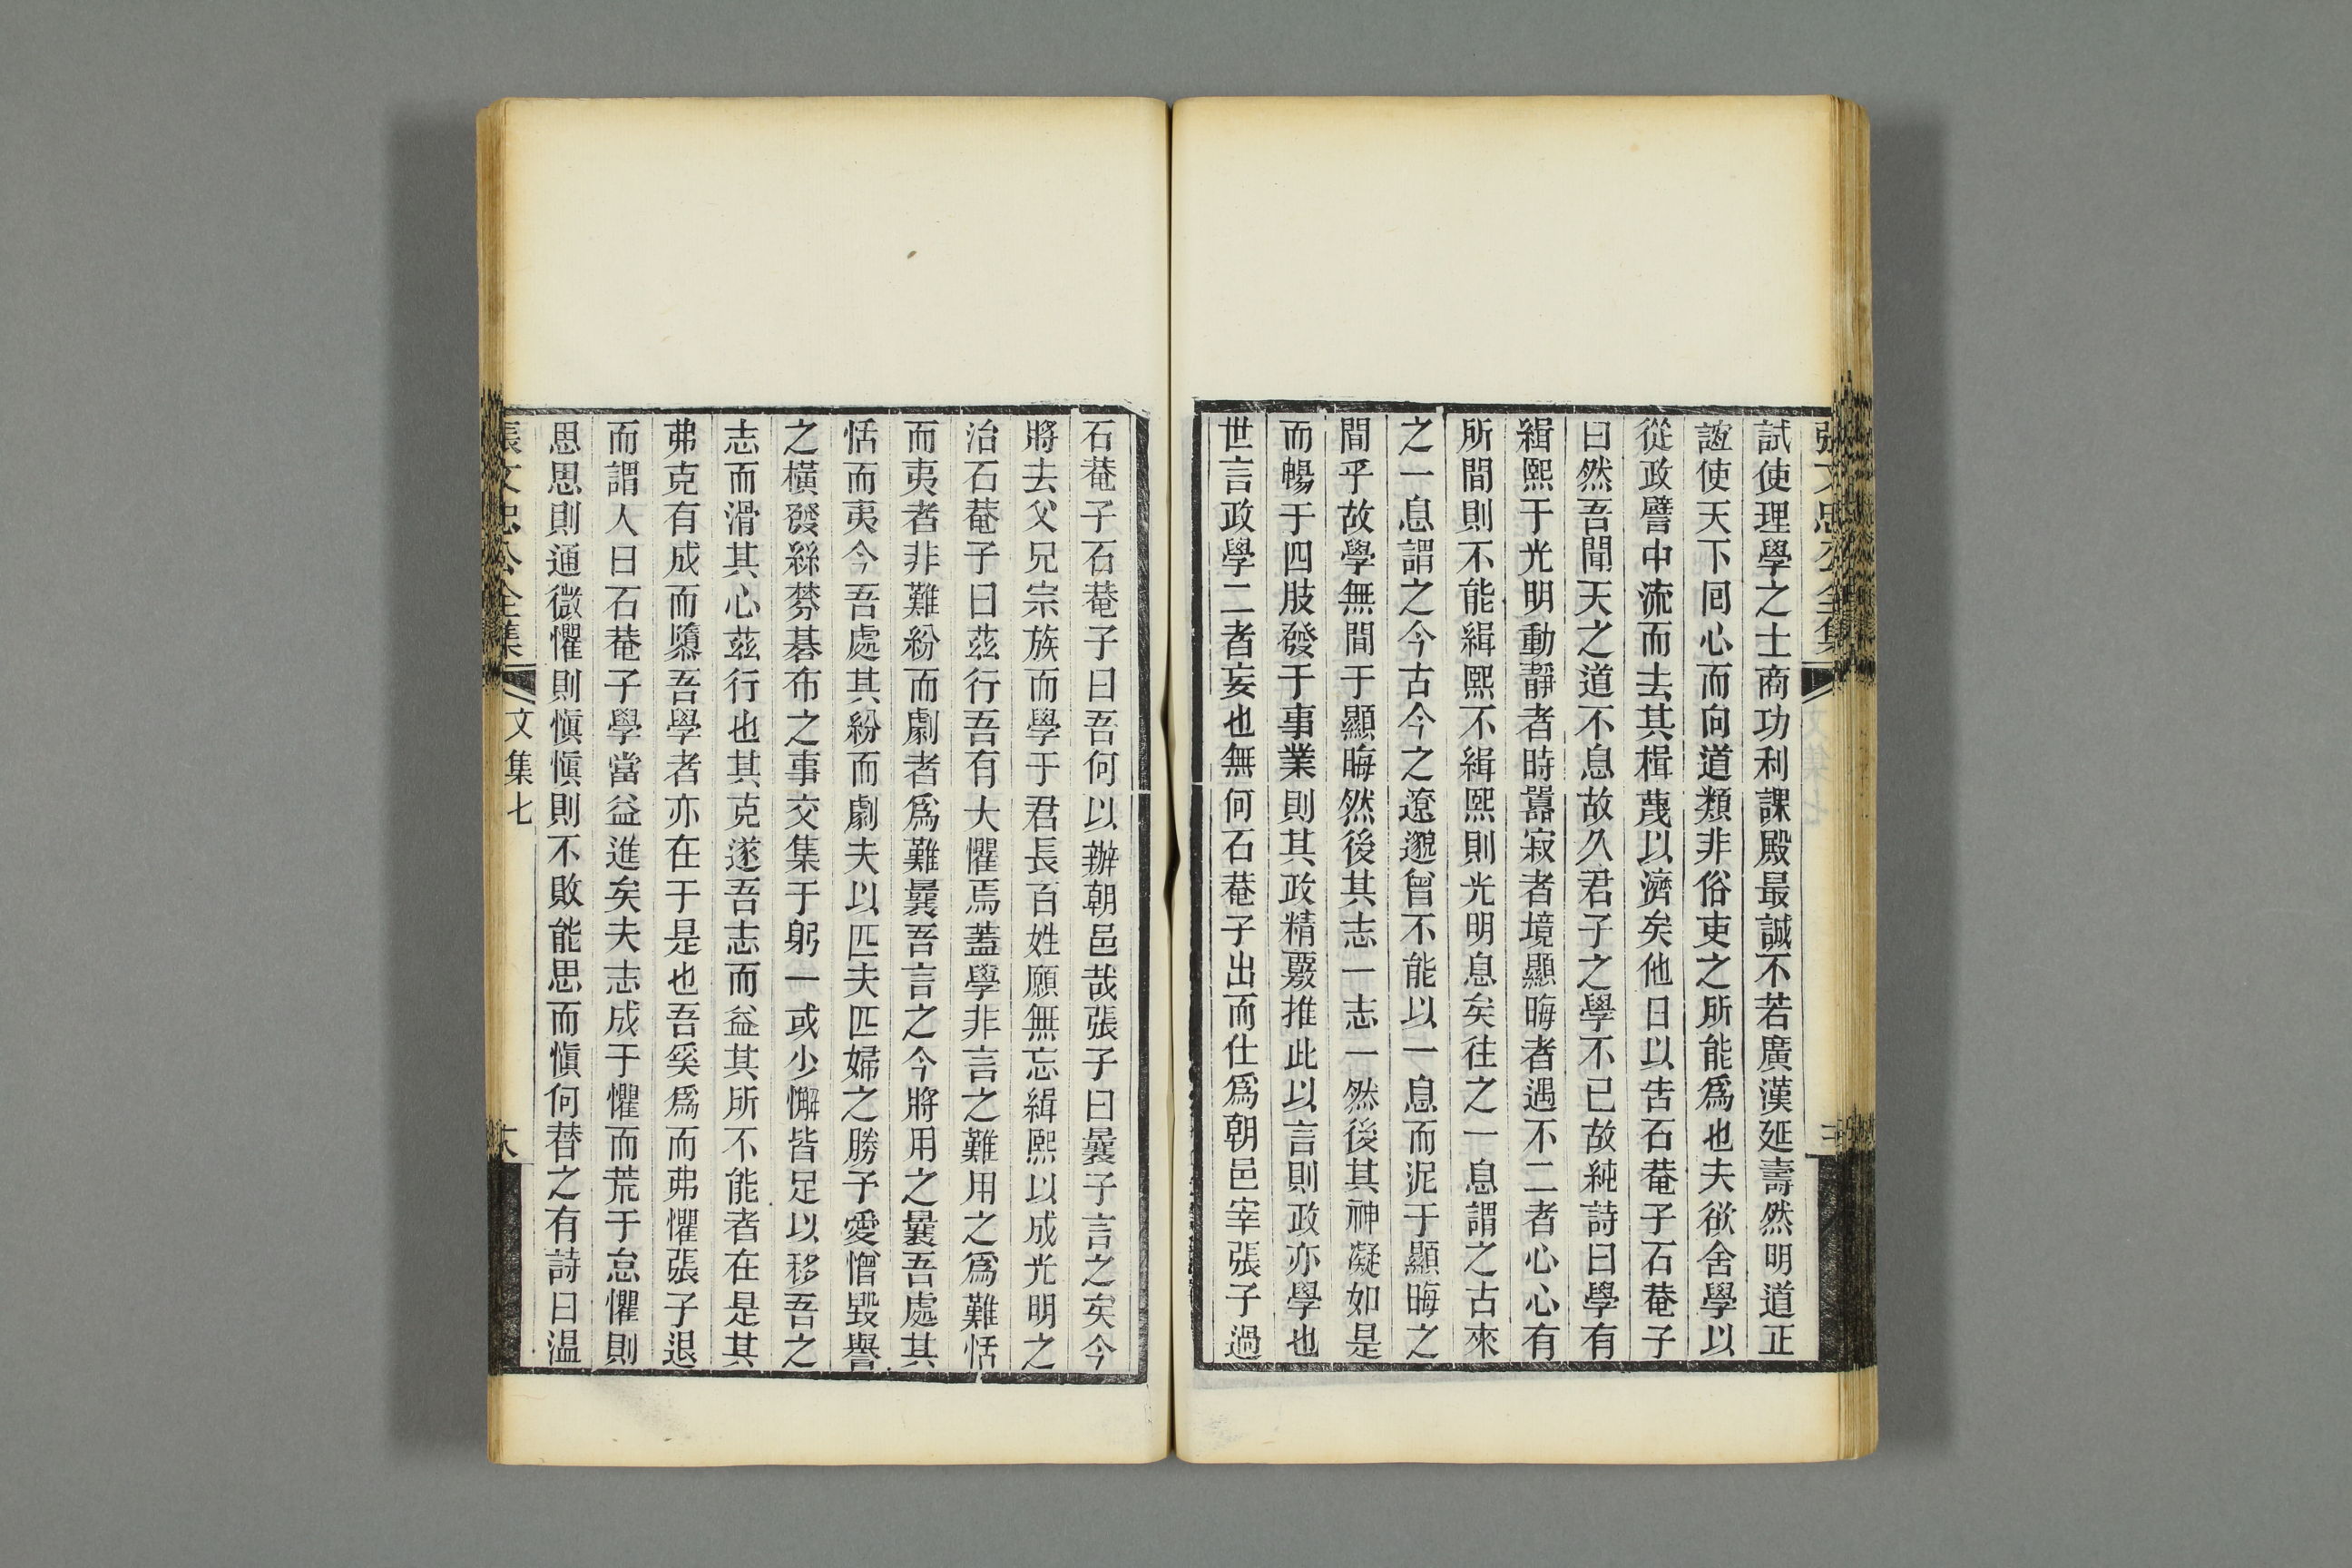 張文忠公全集
試使理學之士商功利課殿最誠不若廣漢延壽然明道正
誼使天下囘心而向道類非俗吏之所能爲也夫欲舍學以
從政譬中流而去其楫蔑以濟矣他日以吿石菴子石菴子
曰然吾聞天之道不息故久君子之學不已故純詩曰學有
緝熙于光明動靜者時嚚寂者境顯晦者遇不二者心心有
所間則不能緝熙不緝熙則光明息矣徃之一息謂之古來
之一息謂之今古今之遼邈曾不能以一息而泥于顯晦之
間乎故學無間于顯晦然後其志一志一然後其神凝如是
而暢于四肢發于事業則其政精覈推此以言則政亦學也
世言政學二者妄也無何石菴子出而仕爲朝邑宰張子過
石菴子石菴子曰吾何以辦朝邑哉張子曰曩子言之矣今
將去父兄宗族而學于君長百姓願無忘緝熙以成光明之
治石菴子曰茲行吾有大懼焉蓋學非言之難用之爲難恬
而夷者非難紛而劇者爲難曩吾言之今將用之曩吾處其
恬而夷今吾處其紛而劇夫以匹夫匹婦之勝予愛憎毀譽
之橫發絲棼碁布之事交集于躬一或少懈皆足以移吾之
志而滑其心茲行也其克遂吾志而益其所不能者在是其
弗克有成而隳吾學者亦在于是也吾奚爲而弗懼張子退
而謂人曰石菴子學當益進矣夫志成于懼而荒于怠懼則
思思則通微懼則愼愼則不敗能思而愼何替之有詩曰温
張文忠公全集
文集七